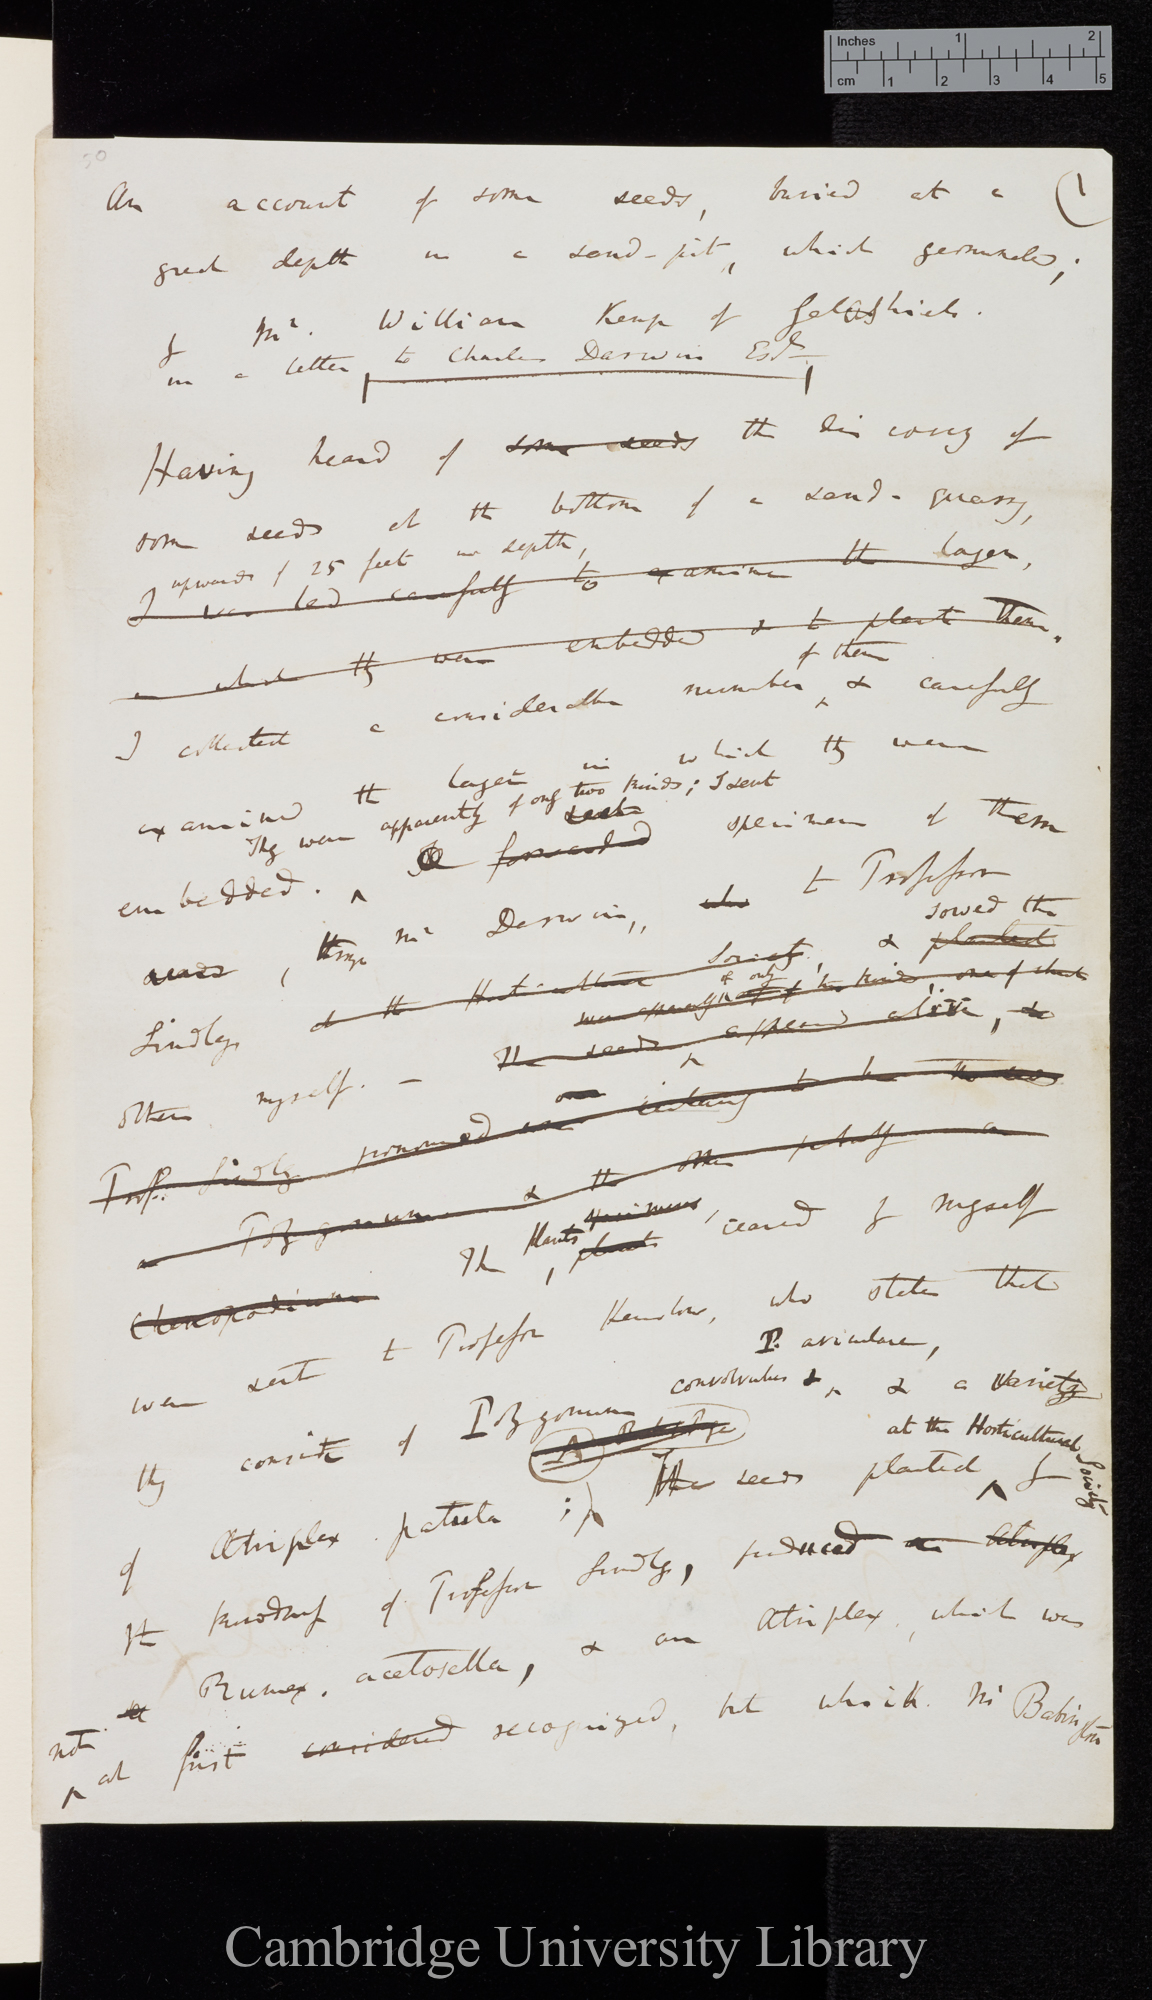 50
(1
An account of some seeds, buried at a
great depth in a sand-pit, which germinated;
by Mr. William Kemp of Galashiels.
in a letter, to Charles Darwin Esqr,
Having heard of some seeds the discovery of
some seeds at the bottom of a sand-quarry,
upwards of 25 feet in depth,
I was led carefully to examine the layer,
in which they were embedded & to plant them.
of them
I collected a considerable number, & carefully
examined the layer in which they were
They were apparently of only two kinds; I sent
embedded. forwarded specimens of them
through Mr Darwin, who to Professor
sowed the
Lindley, & the Horticultural Society, & planted
were apparently of only two kinds, one of which
others myself. — The seeds appeared alive, &
Prof. Lindley pronounced one certainly to be
a Polygonum & the other probably a
Plants specimens,
Chenopodium The plants reared by myself
were sent to Professor Henslow, who states that
P. aviculare,
they consist of Polygonum convolvulus & & a variety
(A)
at the Horticultural Society
of Atriplex patula; The seeds planted by
the kindness of Professor Lindley, produced an Atriplex
a Rumex. acetosella, & an Atriplex, which was
not
at first considered recognized, but which Mr Babington
Inches 1 2
cm 1 2 3 4 5
Cambridge University Library